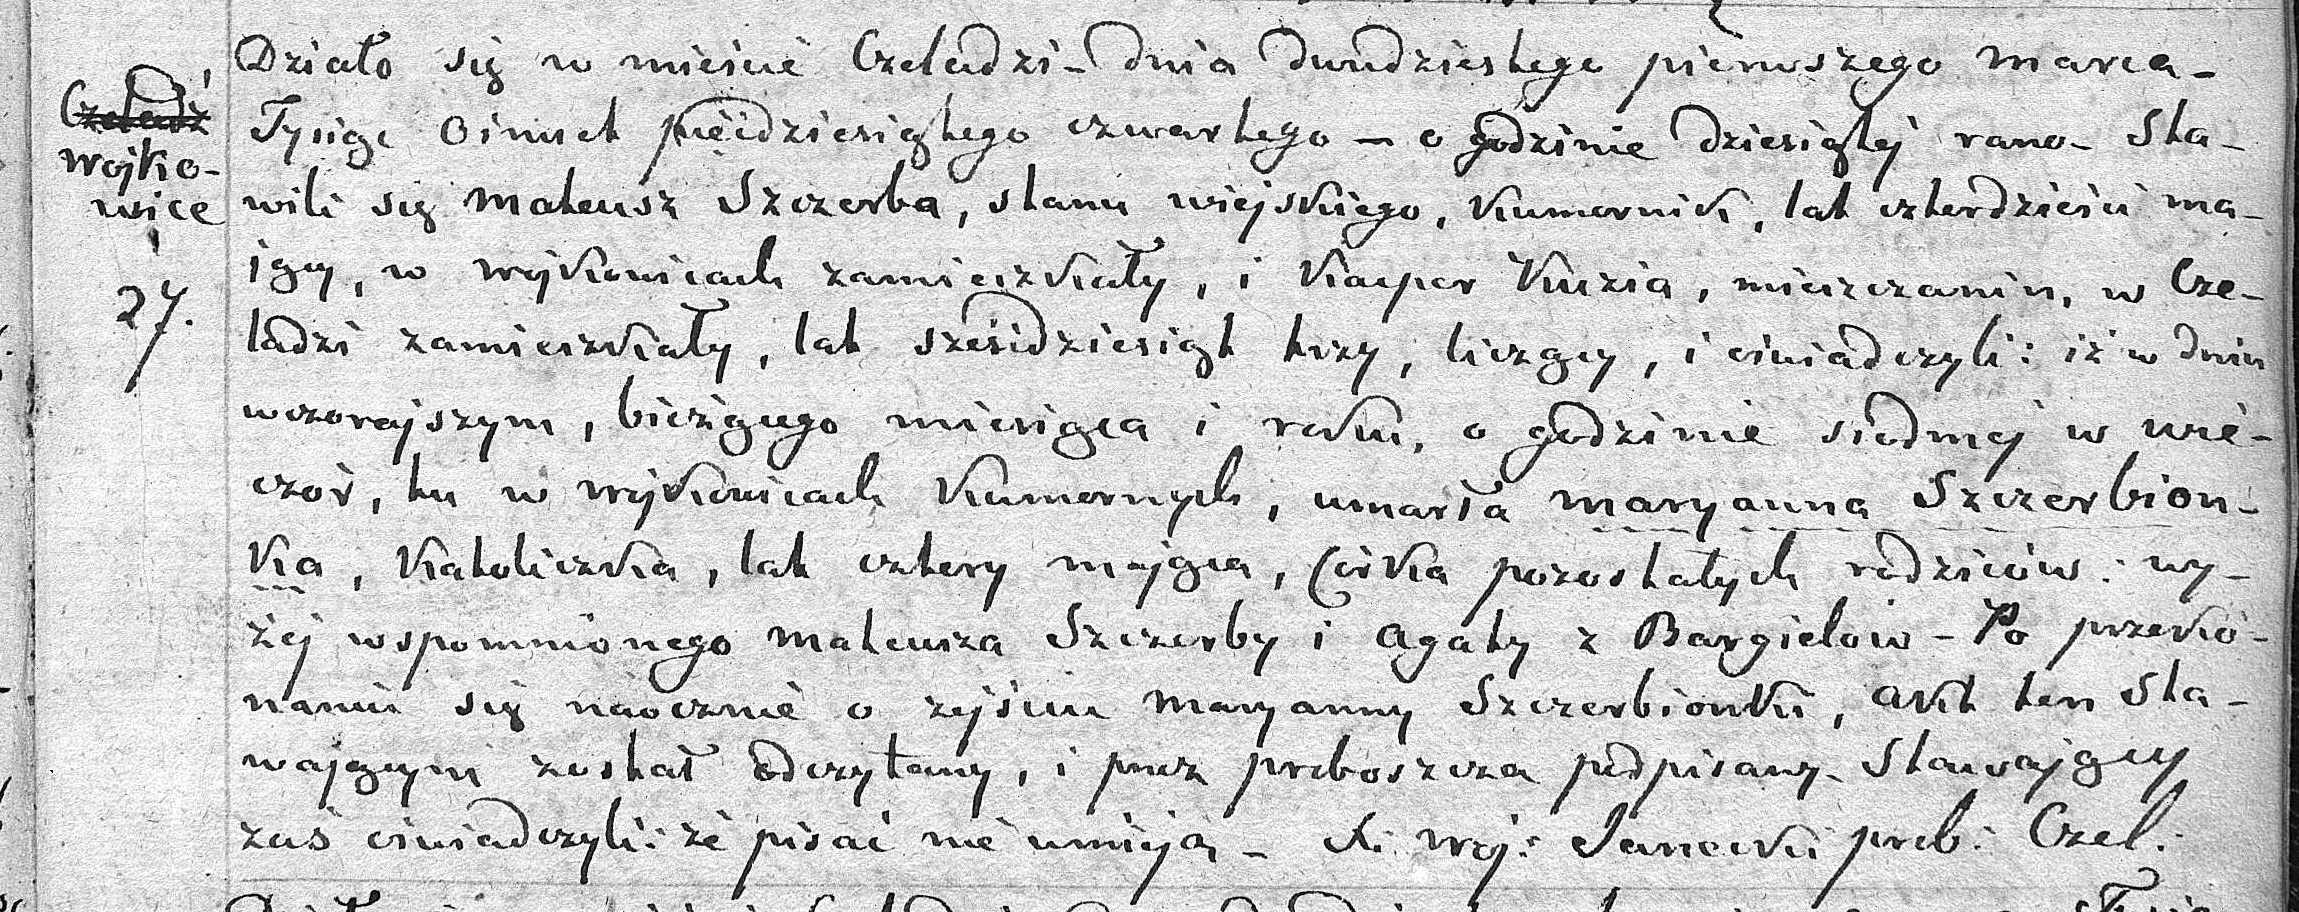 Czeladź
Wojko-
wice
27.
Działo się w mieście Czeladzi - dnia dwudziestego pierwszego marca -
Tysiąc Ośmset pięćdziesiątego czwartego - o godzinie dziesiątej rano - Sta-
wili się Mateusz Szczerba, stanu wiejskiego, Kumornik, lat czterdzieści ma-
iący, w Wojkowicach zamieszkały, i Kacper Kuzia, mieszczanin, w Cze-
ladzi zamieszkały, lat sześćdziesiąt trzy, liczący, i oświadczyli: iż w dniu
wczorajszym, bieżącego miesiąca i roku, o godzinie siódmej w wie-
czór, tu w Wojkowicach Kumornych, umarła Maryanna Szczerbion-
ka, Katoliczka, lat cztery mająca, Córka pozostałych rodziców: wy-
żej wspomnionego Mateusza Szczerby i Agaty z Bargielów - Po przeko-
naniu się naocznie o zejściu Maryanny Szczerbionki, Akt ten Sta-
wającym został odczytany, i przez proboszcza podpisany - Stawający
zaś oświadczyli: że pisać nie umieją - X. Woj: Janecki prob: Czel: